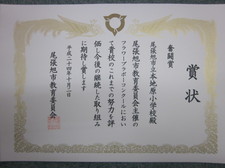 奮闘賞
賞状
尾張旭市立本地原小学校殿
尾張旭市教育委員会主催の
フラワーブラボーコンクールにおい
て貴校のこれまでの努力を評
価し今後の継続した取り組み
に期待し賞します
平成二十四年十月二日
尾張旭市教育委員会